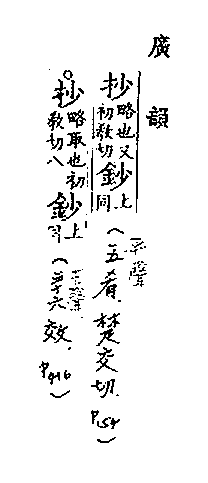 廣韻
抄略也又初教切鈔上同(平聲五肴.楚交切.P154)
抄略取也初教切八鈔上同(去聲三十六效.P416)